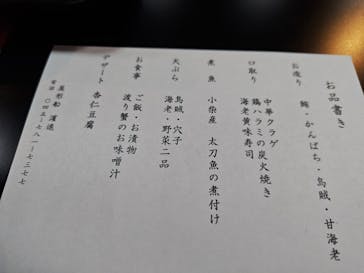 お品書き
お造り 鯵・かんぱち・烏賊・甘海老
口取り 中華クラゲ
鶏ハラミの炭火焼き
海老黄味寿司
煮魚 小柴産 太刀魚の煮付け
天ぷら 烏賊・穴子
海老・野菜二品
お食事 ご飯・お漬物
渡り蟹のお味噌汁
デザート 杏仁豆腐
屋形船 濱進
電話 〇四五-七八一-七三七七